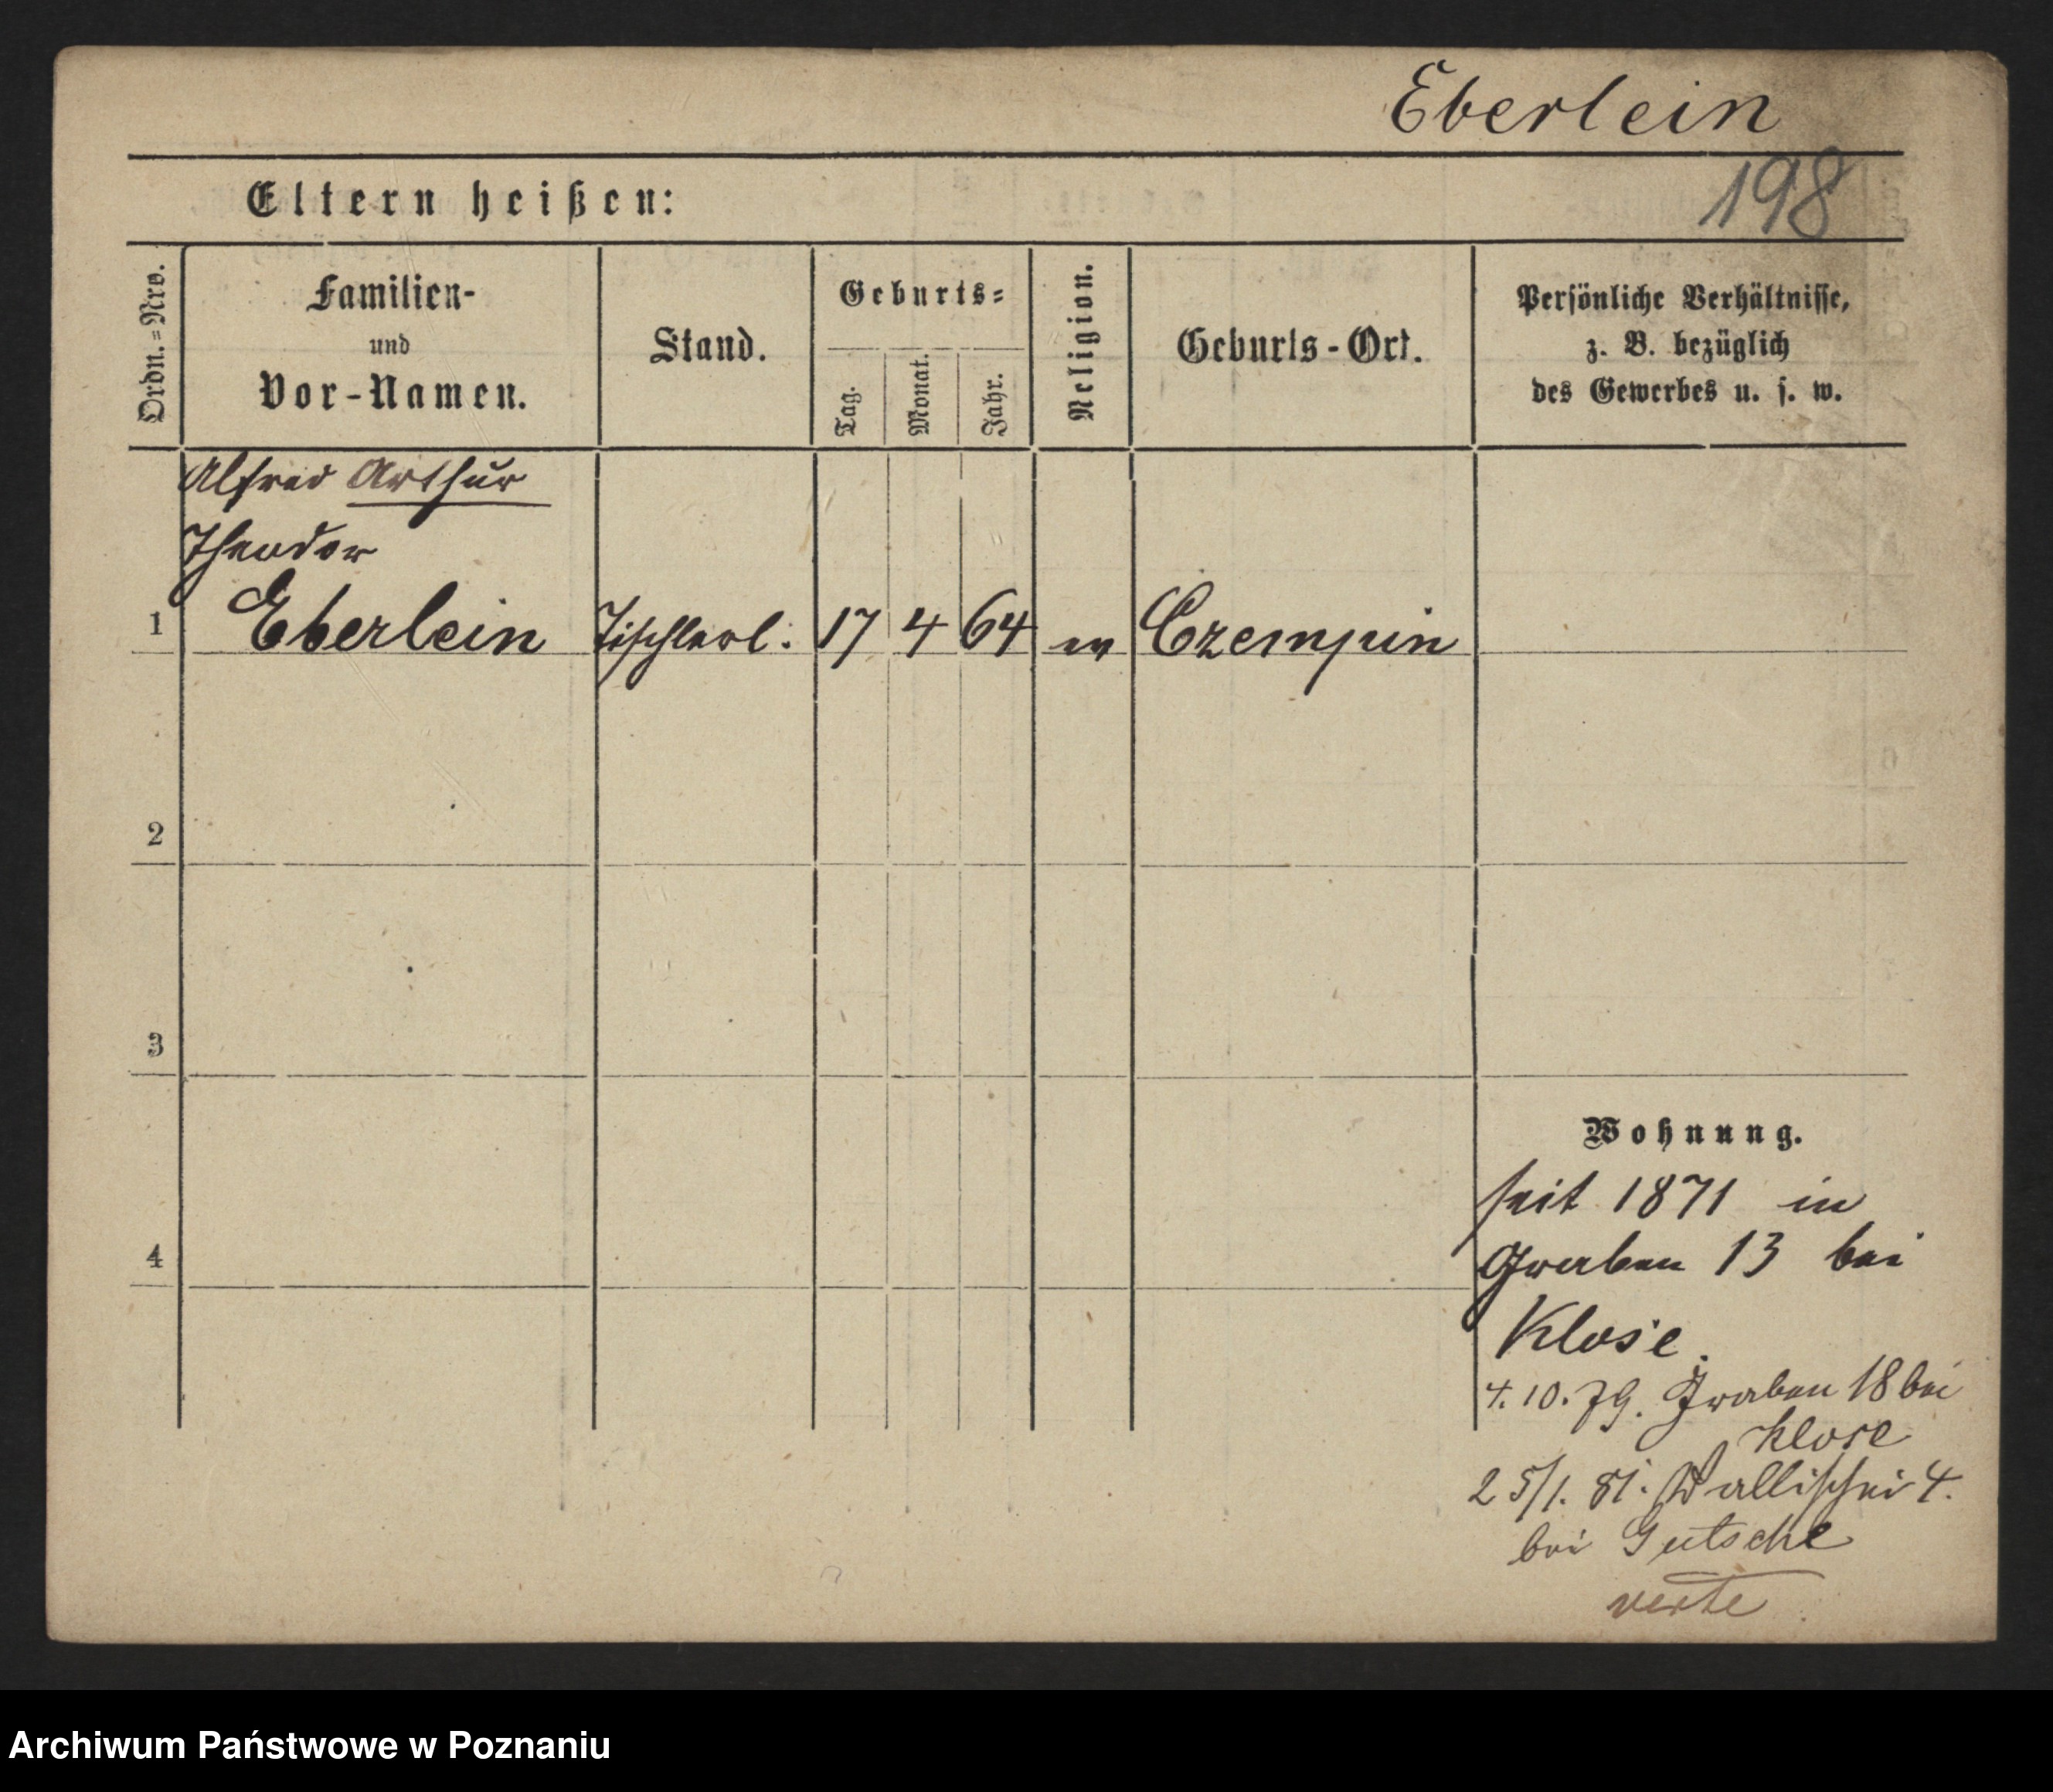 Eberlein
198
Eltern heißen:
Ordn.=Nro.
Familien-
und
Vor-Namen.
Stand.
Geburts=
Tag.
Monat.
Jahr.
Religion.
Geburts-Ort.
Persönliche Verhältnisse,
z. B. bezüglich
des Gewerbes u. s. w.
Alfred Arthur
Theodor
1 Eberlein Tischlerl. 17 4 64 ev Czempin
2
3
4
Wohnung.
seit 1871 in
Graben 13 bei
Klose.
4. 10. 79. Graben 18 bei
Klose
25/1. 81. Wallischei 4.
bei Gutsche
verte
Archiwum Państwowe w Poznaniu